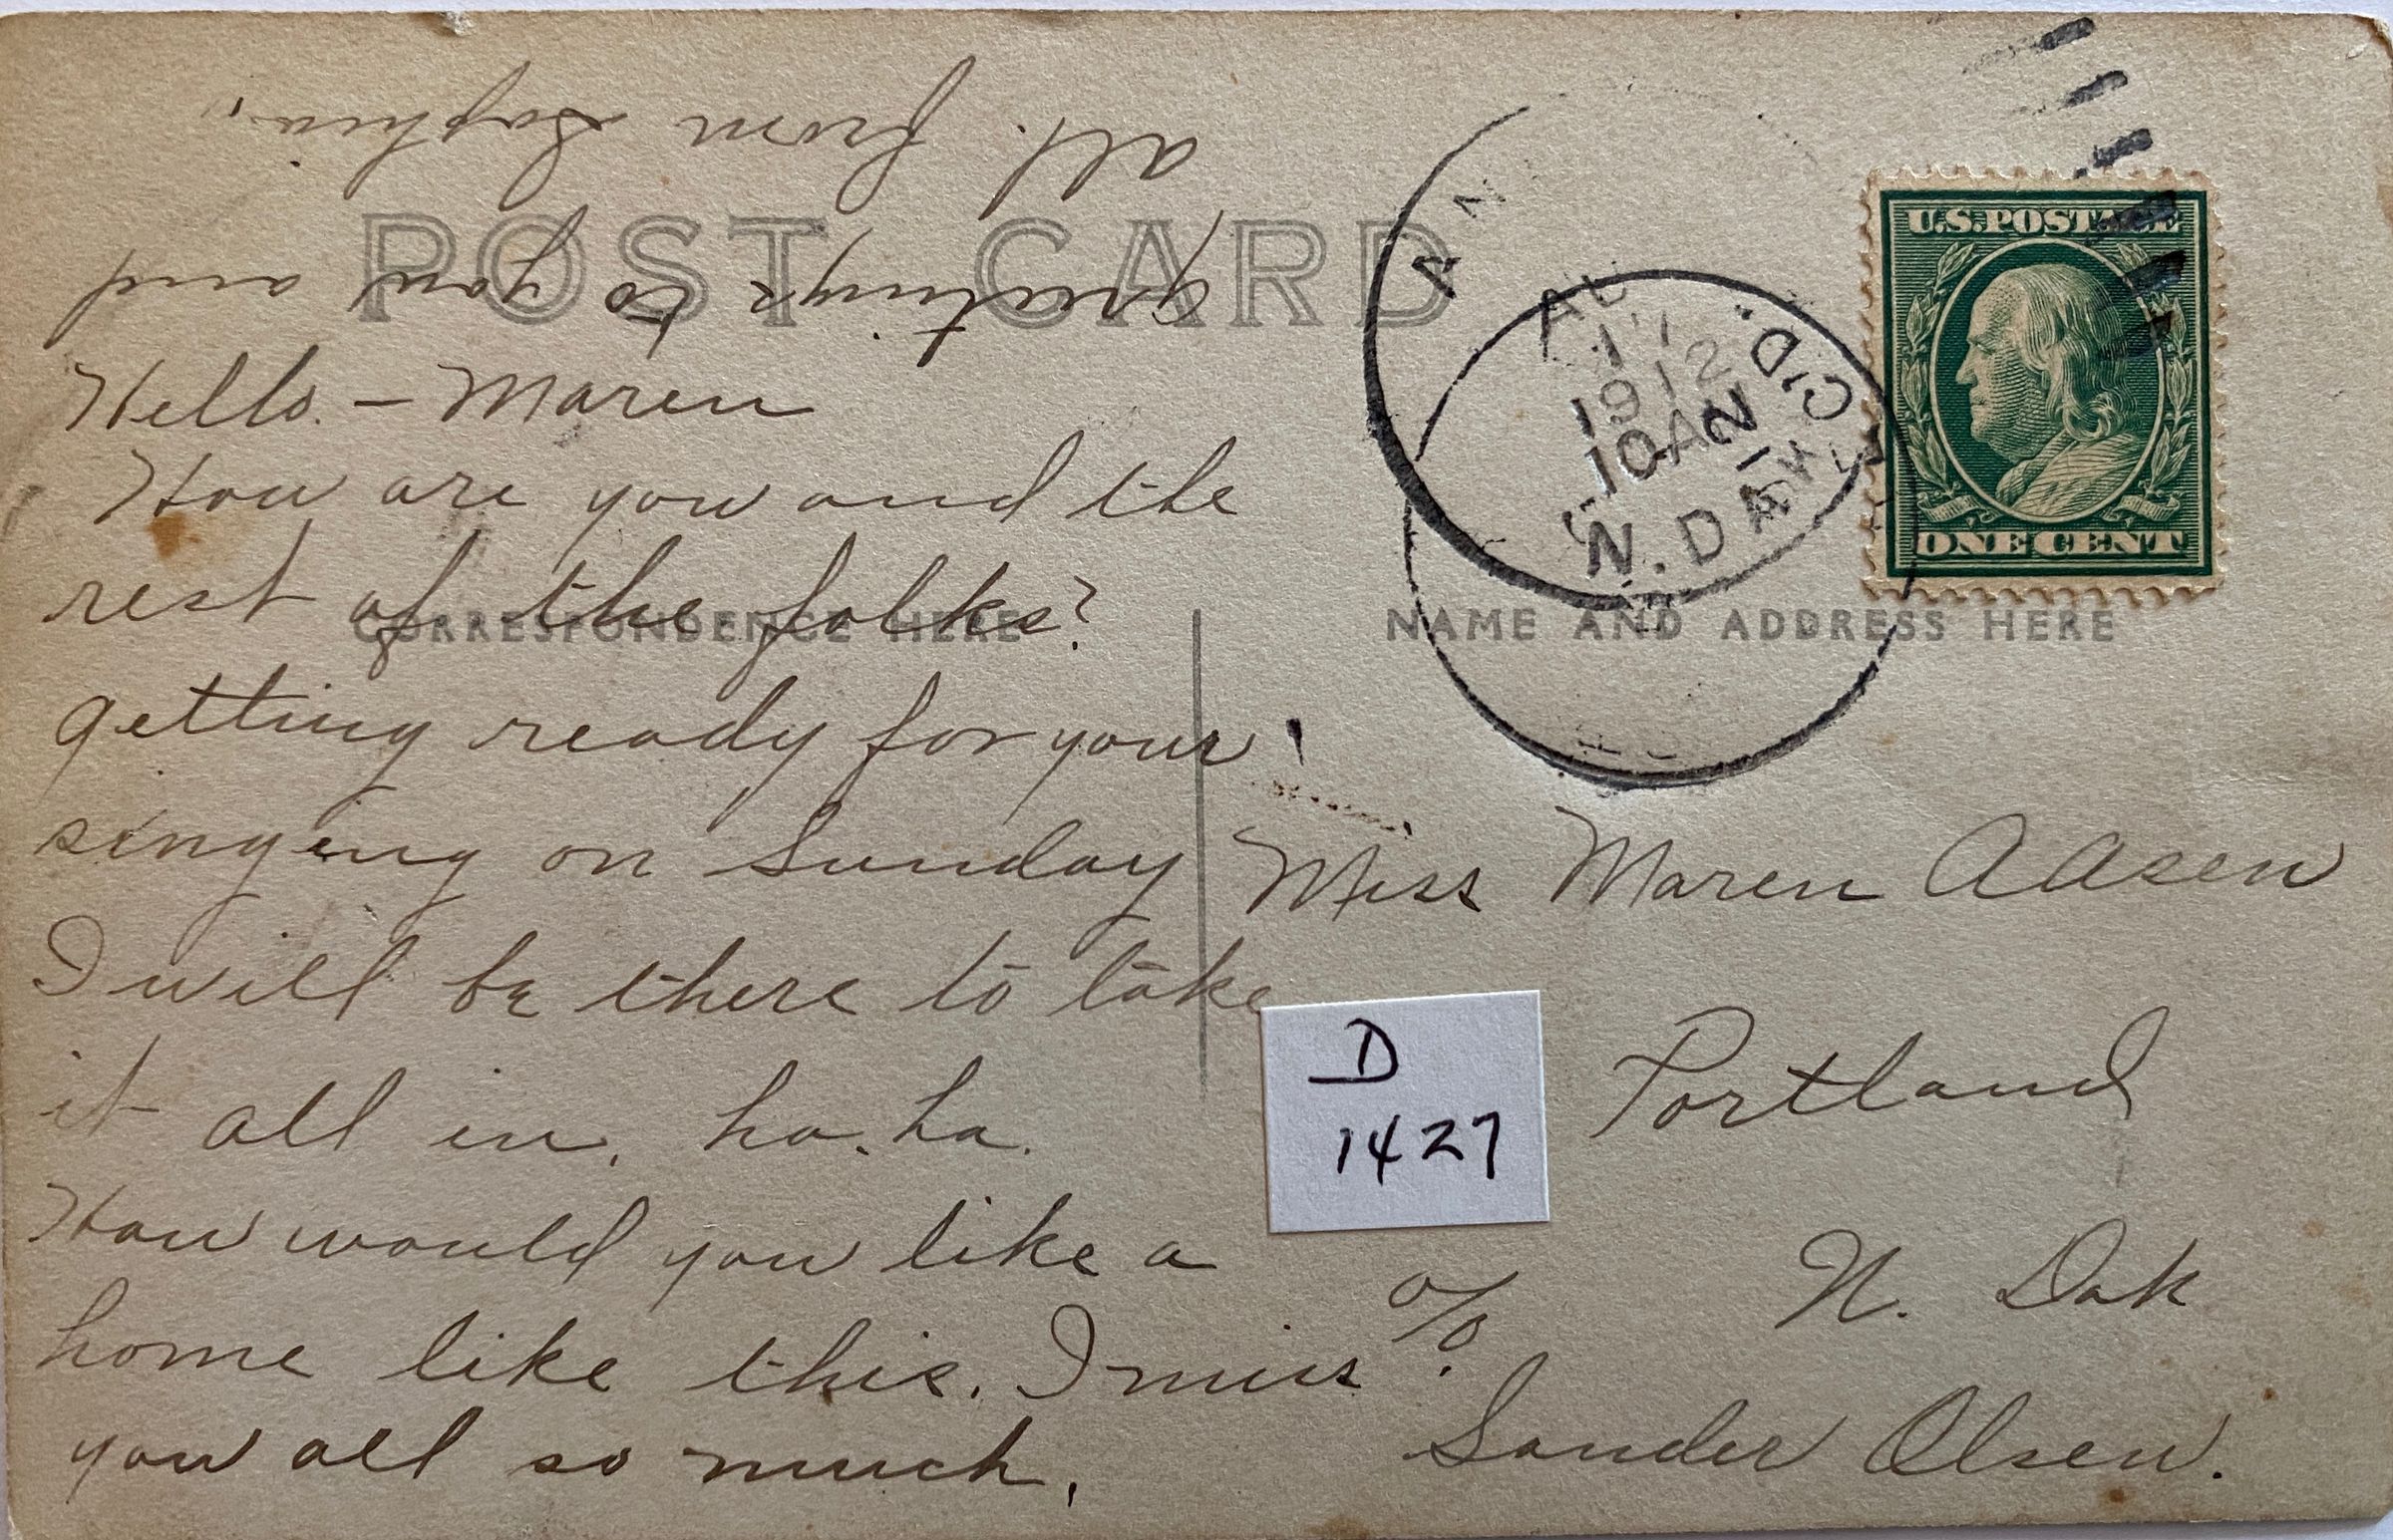 POST CARD
CORRESPONDENCE HERE
NAME AND ADDRESS HERE
Hello. – Maren
How are you and the
rest of the folks?
getting ready for your
singeing on Sunday
I will be there to take
it all in. ha. ha.
How would you like a
home like this. I miss
you all so much.
Greetings to you and
all. from Sophia.
U.S. POSTAGE
ONE CENT
1912
10 AM
N. DAK
REC'D.
Miss Maren Aasen
Portland
N. Dak
c/o
Sander Olsen.
D
1427